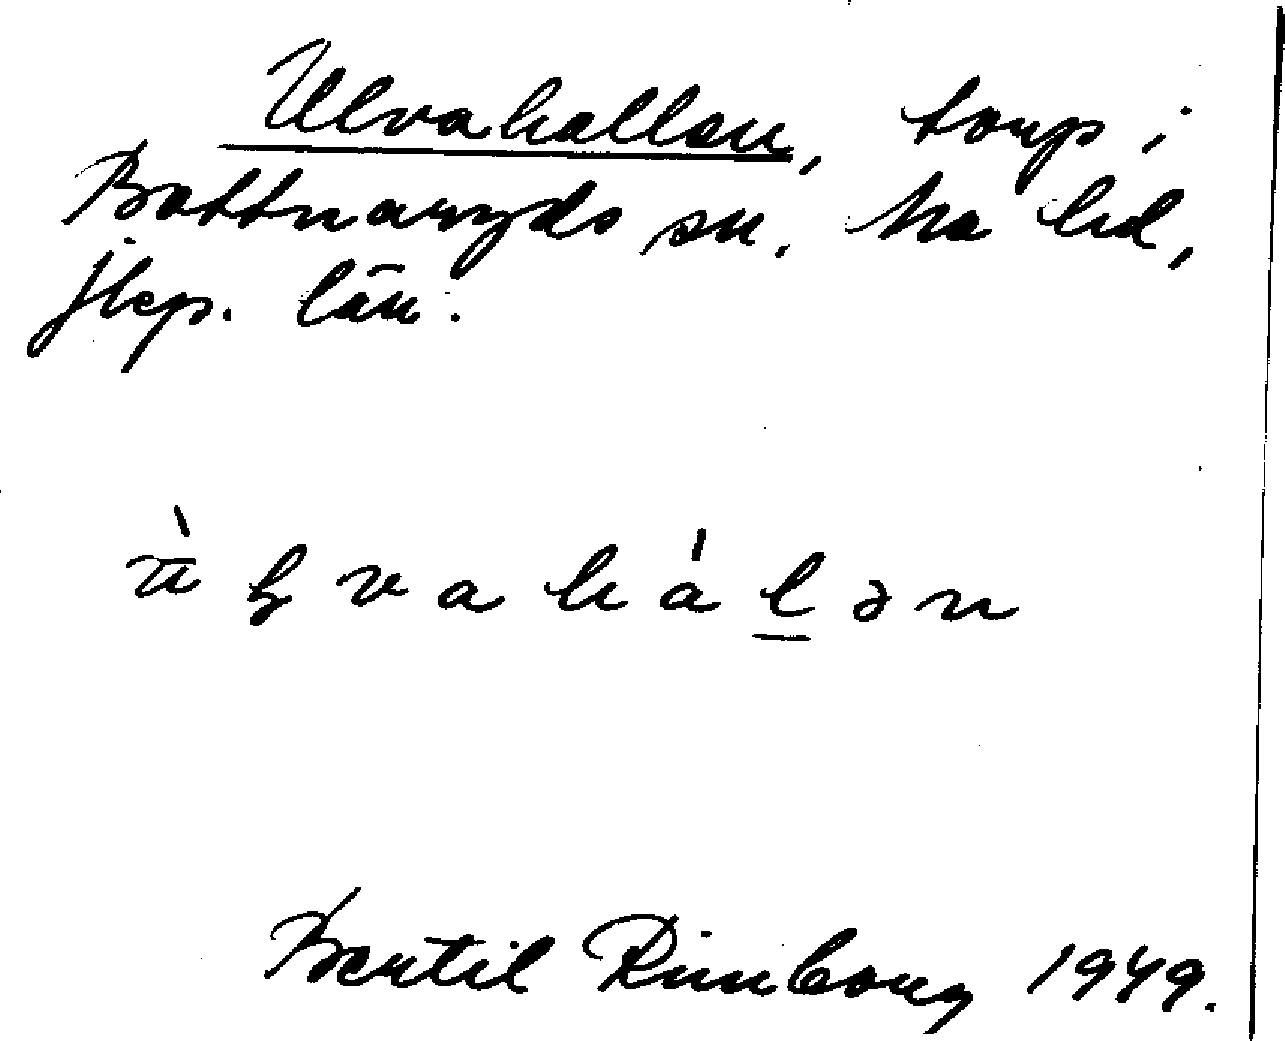 Ulvahallen, torp i
Bottnaryds sn. Mo hd,
Jkp. län.
ù ḷ v a h á l̲ ə n
Bertil Rimborg 1949.